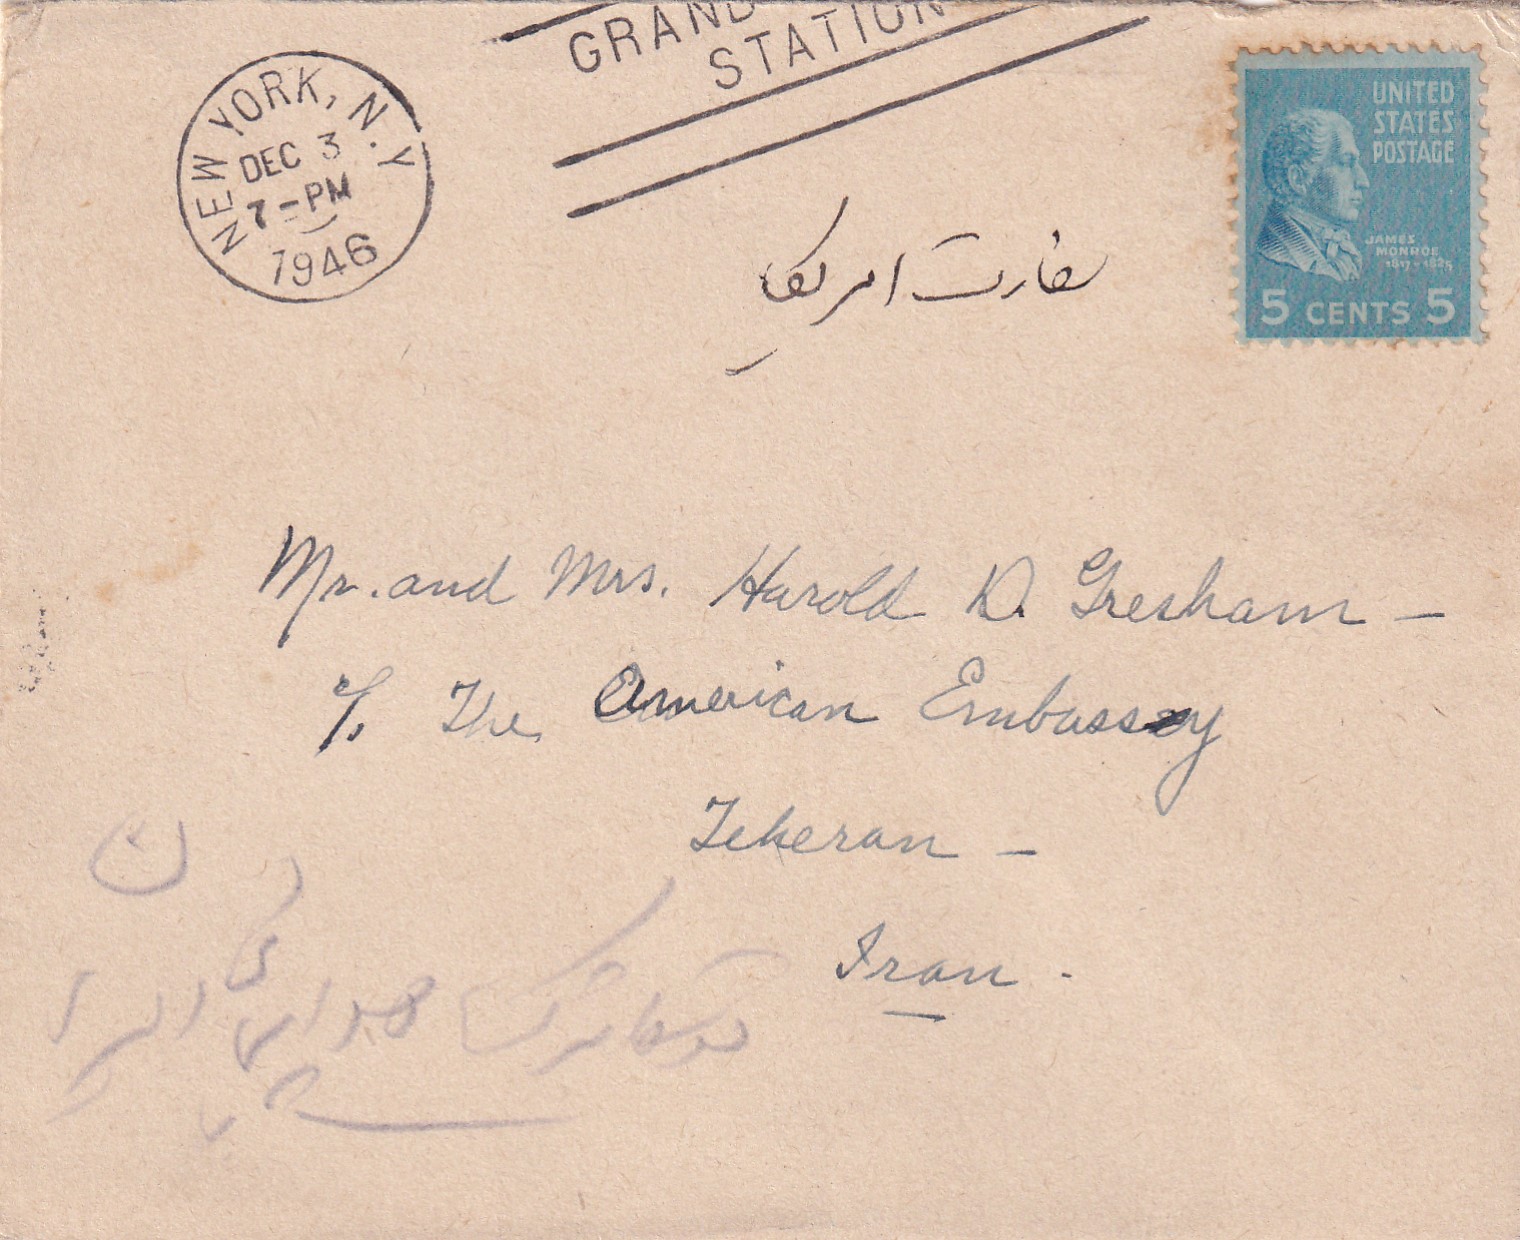 GRAND
STATION
NEW YORK, N.Y.
DEC 3
7-PM
1946
UNITED
STATES
POSTAGE
JAMES
MONROE
1817-1825
5 CENTS 5
سفارت امریکا
Mr. and Mrs. Harold D. Gresham –
c/o The American Embassy
Teheran –
Iran .